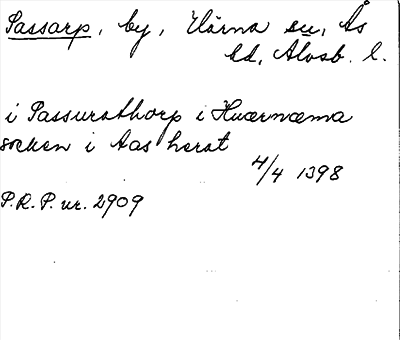 Passarp, by, Värna sn, Ås
hd, Älvsb. l.
i Passurathorp i Hwærnæma
socken i Aas hærat
4/4 1398
P.R.P. nr. 2909